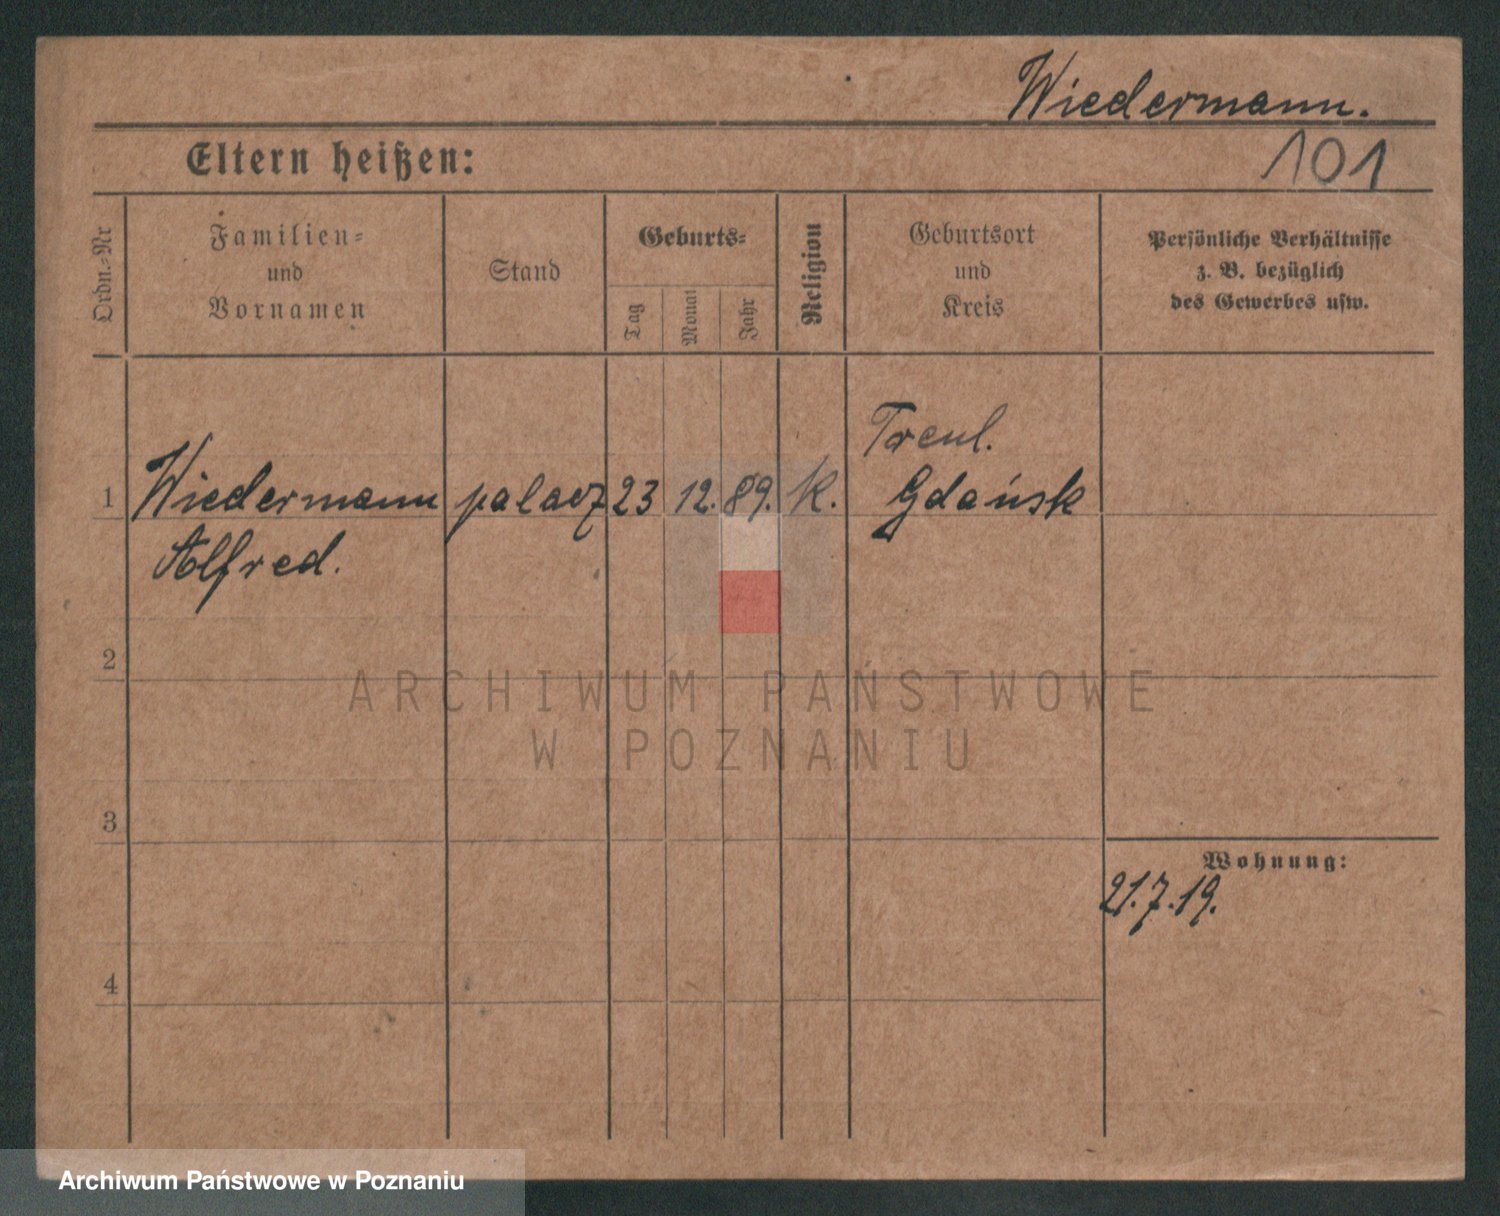 Wiedermann.
Eltern heißen:
101
Ordn.-Nr
Familien-
und
Vornamen
Stand
Geburts-
Tag
Monat
Jahr
Religion
Geburtsort
und
Kreis
Persönliche Verhältnisse
z. B. bezüglich
des Gewerbes usw.
1 Wiedermann palacz 23 12. 89. K.
Alfred.
Gdańsk
2
ARCHIWUM PAŃSTWOWE
W POZNANIU
3
Wohnung:
21.7.19.
4
Archiwum Państwowe w Poznaniu